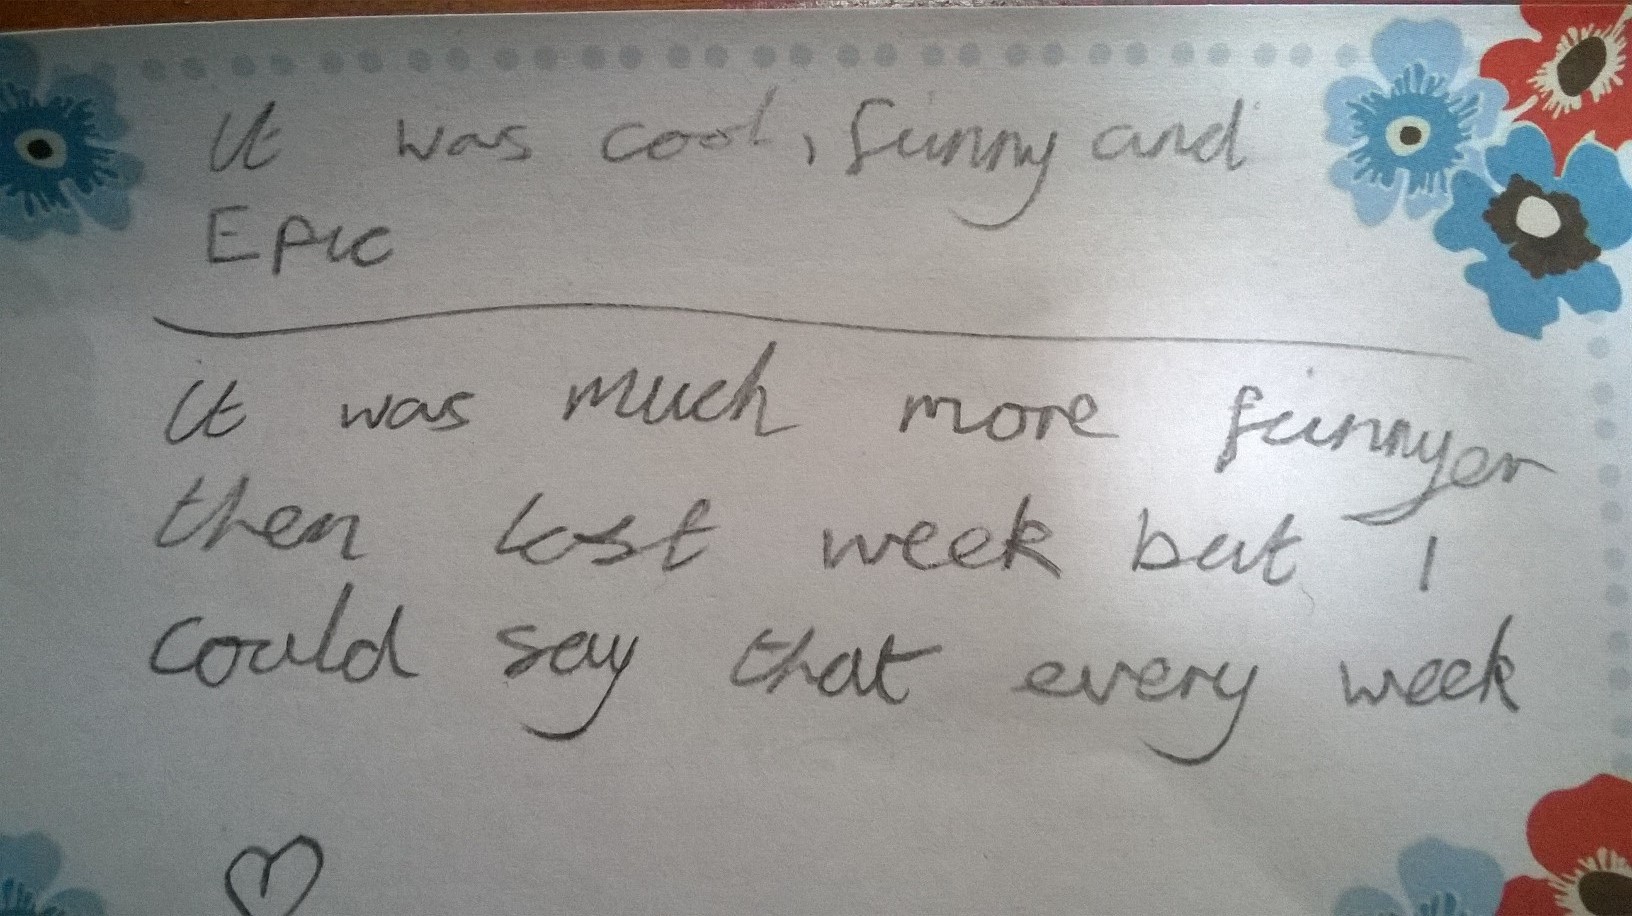 It was cool, funny and
Epic
it was much more funnyer
then last week but I
could say that every week